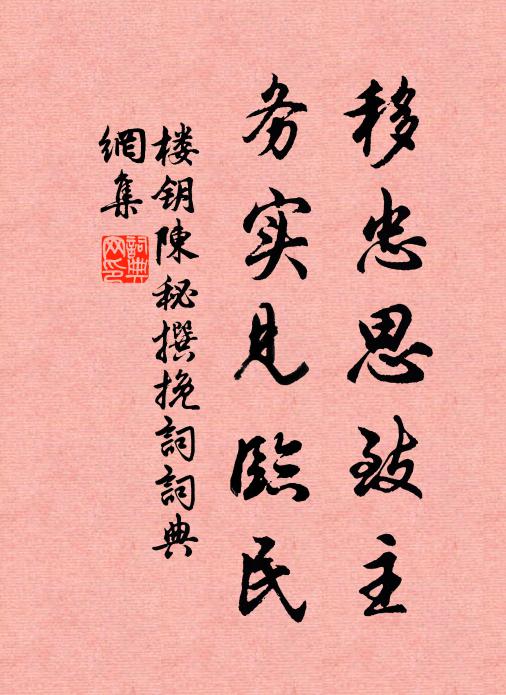 移忠思致主
务实见臨民
楼钥陳秘撰挽詞詞典
網集
詞典
网印